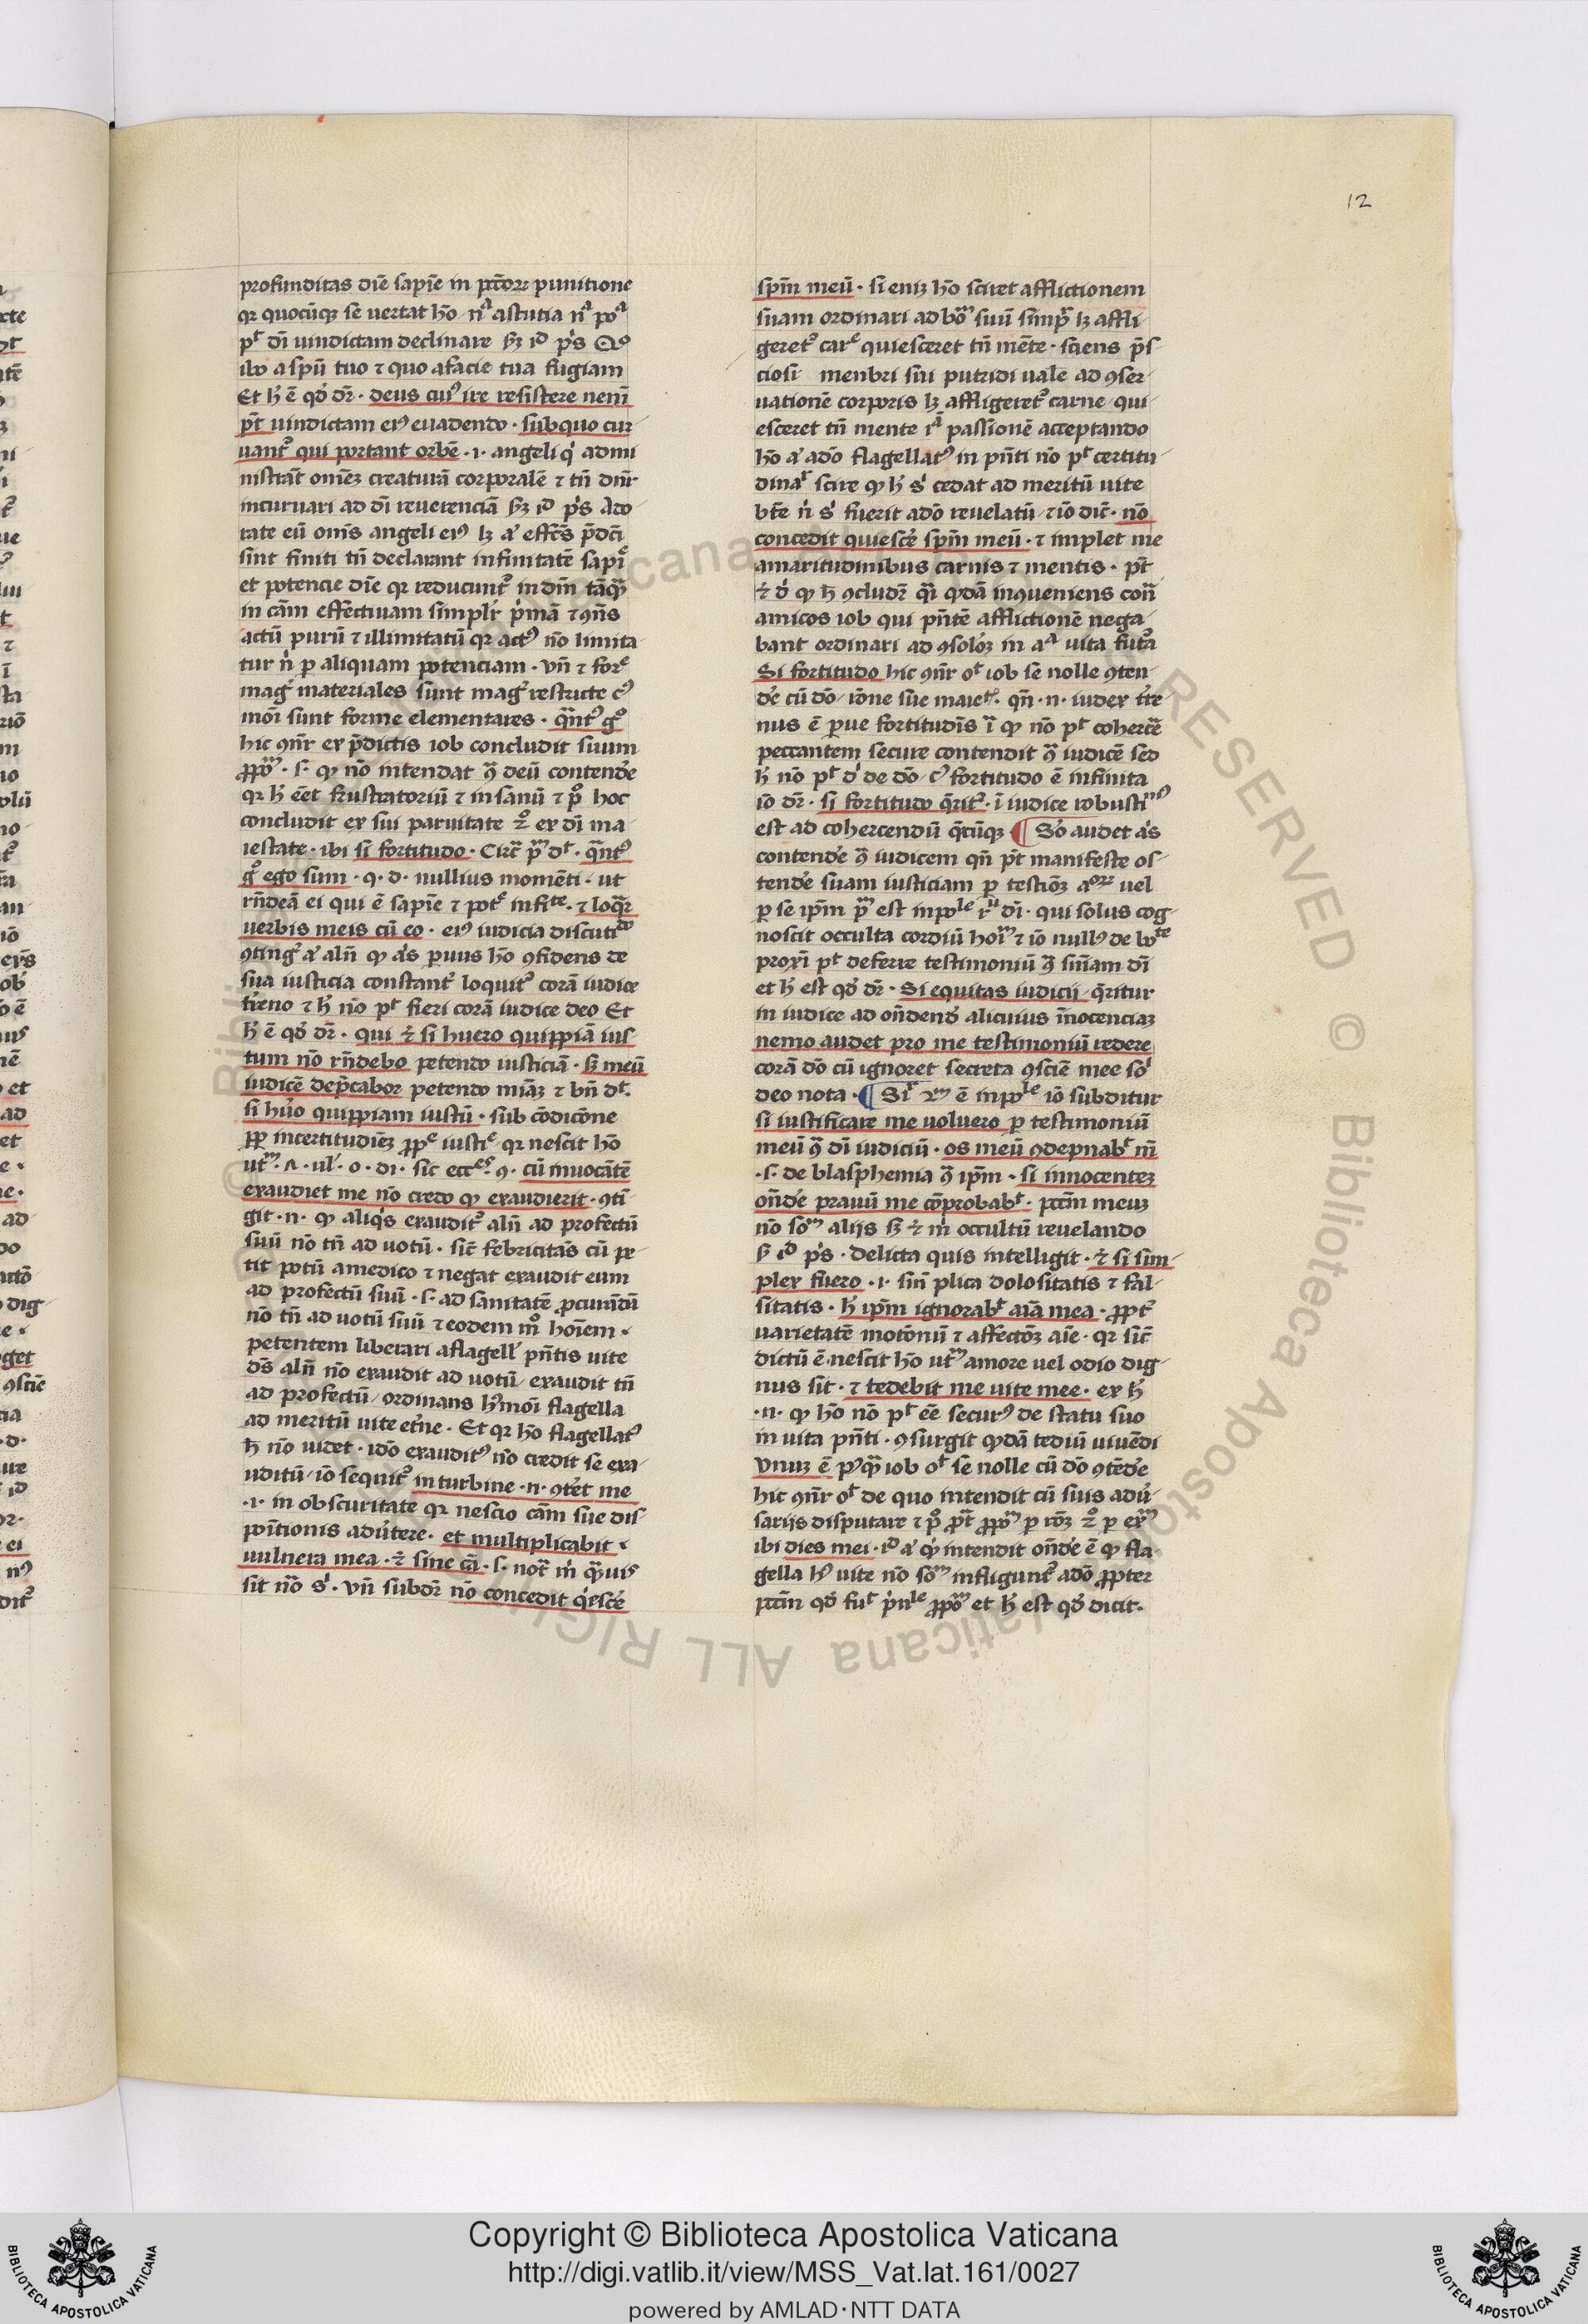 12
profunditas diē sapīe in pctōꝝ punitione
qꝛ quocūqꝫ se uertat hō nͣ astutia nͣ poͣ
pͭ dī uindictam declinare sꝫ id pˢs Qͦ
ibo a spū tuo ⁊ quo a facie tua fugiam
Et h̄ ē qd̓ dr̄ · deus cuiꝰ ire resistere nem̄
pt̄ uindictam eiꝰ euadendo · sub quo cur
uant᷑ qui portant orbē · i · angeli qͥ admi
nistrāt omēꝫ creaturā corporalē ⁊ tn̄ dnr̄
incuruari ad dī reuerenciā sꝫ id pˢs Ado
rate eū om̄s angeli eiꝰ lꝫ aͥ effcs̄ p̄dc̄i
sint finiti tn̄ declarant infinitatē sapīͤ
et potencie diē qꝛ reducunt᷑ in dm̄ tāqꝫ
in cām effectiuam simplr̄ pͥmā ⁊ ꝯn̄s
actū purū ⁊ illimitatū qꝛ actꝰ nō limita
tur nͥ ꝑ aliquam potenciam · vn̄ ⁊ forͤ
magͥ materiales sunt magͥ restricte cͥ
mōi sunt forme elementares · qn̄tꝰ gͦ
hic ꝯnr̄ ex p̄dictis iob concludit suum
ꝓpoͫ · s · ꝙ nō intendat ꝯͣ deū contendē
qꝛ h̄ eēt frustratoriū ⁊ insanū ⁊ pͦ hoc
concludit ex sui paruitate 2ͦ ex dī ma
iestate · ibi si fortitudo · Circ̄ pͫ dͭ · qn̄tꝰ
gͦ ego sum · q · d · nullius momēti · ut
rn̄deā ei qui ē sapīe ⁊ potͤ infiͭͤ · ⁊ loqr̄
uerbis meis cū eo · eiꝰ iudicia discutiͩͦ
ꝯtingͭ aͥ aln̄ ꝙ aͥs puus hō ꝯfidens de
sua iusticia constantͬ loquit᷑ corā iudice
tr̄eno ⁊ h̄ nō pͭ fieri corā iudice deo Et
h̄ ē qd̓ dr̄ · qui ⁊ si huero quippiā ius
tum nō rn̄debo petendo iusticiā · sꝫ meū
iudicē dep̄cabor petendo miāꝫ ⁊ bn̄ dͭ ·
si hūo quippiam iustū · sub cōdicōne
ꝓp incertitudiēꝫ ꝓpͤ iustiͤ qꝛ nescit hō
utͫ · a · ul̓ · o · di · sic eccͤˢ · 9 · cū inuocātē
exaudiet me nō credo ꝙ exaudierit · ꝯtī
git · n · ꝙ aliqͥs exaudit᷑ aln̄ ad profectū
suū nō tn̄ ad uotū · sic̄ febricitās cū pe
tit potū a medico ⁊ negat exaudit eum
ad profectū suū · s · ad sanitatē ꝓcurādū
nō tn̄ ad uotū suū ⁊ eodem mͦ hoīem ·
petentem liberari a flagell̓ pn̄tis uite
dꝰs aln̄ nō exaudit ad uotū / exaudit tn̄
ad profectū / ordinans hꝰmōi flagella
ad meritū uite et̓ne · Et qꝛ hō flagellatꝰ
h̄ nō uidet · idō exauditꝰ nō credit se exa
uditū / iō sequit᷑ in turbine · n · ꝯtet̓ me
· i · in obscuritate qꝛ nescio cām sue dis
pōitionis adūtere · et multiplicabit ·
uulnera mea · ⁊ sine cā · s · not̄ mͥ qͣuis
sit nō sͥ · vn̄ subdr̄ nō concedit qͥescē
spm̄ meū · si enīꝫ hō sciret afflictionem
suam ordinari ad boͫ suū simpͬ lꝫ affli
geret᷑ carͤ quiesceret tn̄ mēte · sciens p̄s
ciosi menbri sui putridi uale ad ꝯser
uationē corporis lꝫ affligeret᷑ carne / qui
esceret tn̄ mente iͣ passionē acceptando
hō aͥ a dō flagellatꝰ in pn̄ti nō pͭ certitu
dinaͬ scire ꝙ h̄ sͥ cedat ad meritū uite
btē nͥ sͥ fuerit a dō reuelatū / ⁊ iō dic̄ · nō
concedit quiescē spm̄ meū · ⁊ implet me
amaritudinibus carnis ⁊ mentis · pt̄
⁊ dͥ ꝙ h̄ ꝯcludr̄ qͥ qdā inqueniens contͣ
amicos iob qui pn̄tē afflictionē nega
bant ordinari ad ꝯsolōꝫ in aͣ uita futͣa
Si fortitudo hic ꝯnr̄ oͭ iob se nolle ꝯten
dē cū dō / iōne sue maieͭˢ · qn̄ · n · iudex tr̄re
nus ē ꝑue fortitudīs ī ꝙ nō pͭ cohercē
peccantem secure contendit ꝯͣ iudicē sed
h̄ nō pͭ dͥ de dō / cꝰ fortitudo ē infinita
iō dr̄ · si fortitudo qr̄it᷑ · ī iudice robustiꝰˢ
est ad cohercendū qͣcūqꝫ ¶ Sꝫ o audet aͥs
contendē ꝯͣ iudicem qn̄ pt̄ manifeste os
tendē suam iusticiam ꝑ testiōꝫ aͦꝝ uel
ꝑ se ipm̄ pͫ est inpoͥˡͤ rͧ dī · qui solus cog
noscit occulta cordiū hoīͫ ⁊ iō nullꝰ de boͭͤ
proxī pͭ deferre testimoniū ꝯͣ sn̄iam dī
et h̄ est qd̓ dr̄ · Si equitas iudicij qr̄itur
in iudice ad on̄dendͦ alicuius īnocenciaꝫ
nemo audet pro me testimoniū redere
corā dō cū ignoret secreta ꝯsciē mee sōͥ
deo nota · ¶ Siͬ 2ͫ ē inpoͥˡͤ iō subditur
si iustificare me uoluero ꝑ testimoniū
meū ꝯͣ dī iudiciū · os meū ꝯdepnabͭ m̄
· s · de blasphemia ꝯͣ ipm̄ · si innocenteꝫ
on̄dē prauū me cōprobabͭ · pctm̄ meuꝫ
nō sōͫ alijs sꝫ ⁊ mͥ occultū reuelando
sꝫ id pˢs · delicta quis intelligit · ⁊ si sim
plex fuero · i · sin̄ plica dolositatis ⁊ fal
sitatis · h̄ ipm̄ ignorabͭ aīa mea · ꝓpt᷑
uarietatē motōnū ⁊ affectōꝫ aīe · qꝛ sic̄
dictū ē · nescit hō utͫ amore uel odio dig
nus sit · ⁊ tedebit me uite mee · ex h̄
· n · ꝙ hō nō pͭ eē securꝰ de statu suo
in uita pn̄ti · ꝯsurgit qdā tediū uiuēdi
Vnuꝫ ē pꝰqͣ iob oͭ se nolle cū dō ꝯtēdē
hic ꝯnr̄ oͭ de quo intendit cū suis adū
sarijs disputare ⁊ pͦ pt̄ ꝓpoͫ ꝑ rōꝫ 2ͦ ꝑ exͫ
ibi dies mei · id aͥ qd̓ intendit on̄dē ē ꝙ fla
gella hꝰ uite nō sōͫ infligunt᷑ a dō ꝓpter
pctm̄ qd̓ fuͭ pͥnͥˡͤ ꝓpoͫ et h̄ est qd̓ dicit ·
Copyright © Biblioteca Apostolica Vaticana
http://digi.vatlib.it/view/MSS_Vat.lat.161/0027
powered by AMLAD·NTT DATA